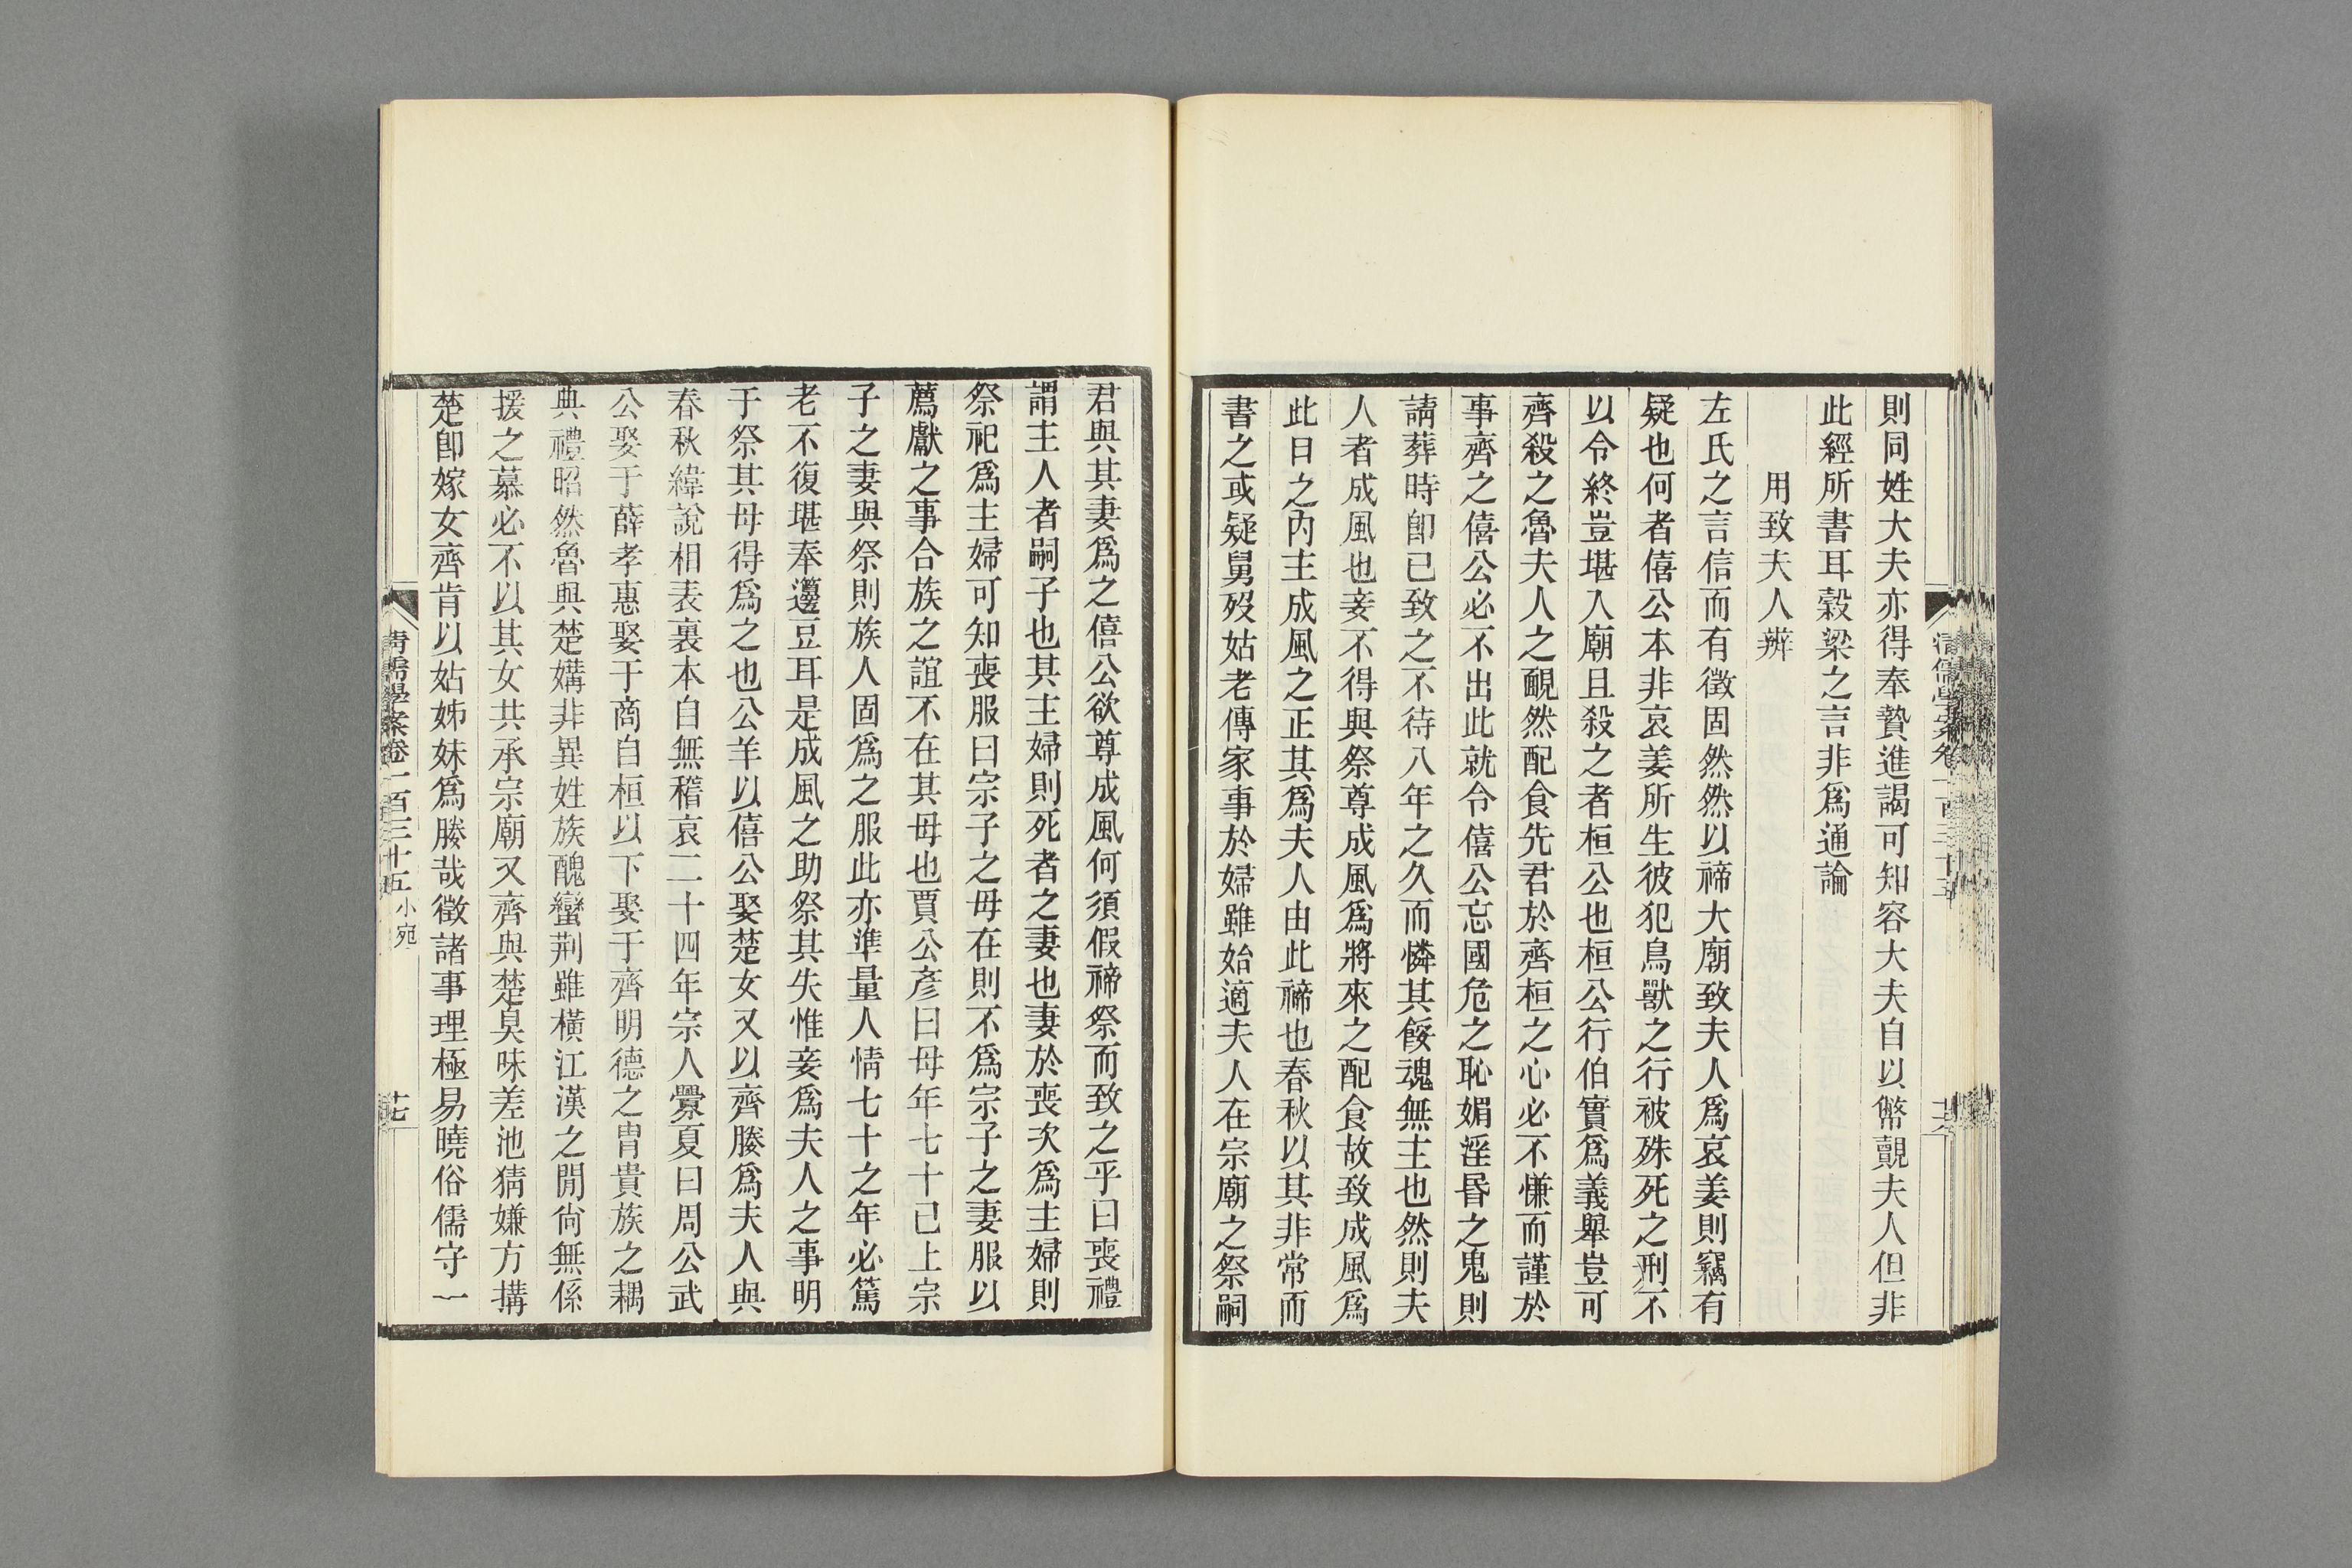 則同姓大夫亦得奉贄進謁可知容大夫自以幣覿夫人但非
此經所書耳穀梁之言非爲通論
用致夫人辨
左氏之言信而有徵固然然以禘大廟致夫人爲哀姜則竊有
疑也何者僖公本非哀姜所生彼犯鳥獸之行被殊死之刑不
以令終豈堪入廟且殺之者桓公也桓公行伯實爲義舉豈可
齊殺之魯夫人之靦然配食先君於齊桓之心必不慊而謹於
事齊之僖公必不出此就令僖公忘國危之恥媚淫昬之鬼則
請葬時卽已致之不待八年之久而憐其餒魂無主也然則夫
人者成風也妾不得與祭尊成風爲將來之配食故致成風爲
此日之內主成風之正其爲夫人由此禘也春秋以其非常而
書之或疑舅歿姑老傳家事於婦雖始適夫人在宗廟之祭嗣
君與其妻爲之僖公欲尊成風何須假禘祭而致之乎曰喪禮
謂主人者嗣子也其主婦則死者之妻也妻於喪次爲主婦則
祭祀爲主婦可知喪服曰宗子之母在則不爲宗子之妻服以
薦獻之事合族之誼不在其母也賈公彥曰母年七十已上宗
子之妻與祭則族人固爲之服此亦準量人情七十之年必篤
老不復堪奉籩豆耳是成風之助祭其失惟妾爲夫人之事明
于祭其母得爲之也公羊以僖公娶楚女又以齊媵爲夫人與
春秋緯說相表裏本自無稽哀二十四年宗人釁夏曰周公武
公娶于薛孝惠娶于商自桓以下娶于齊明德之胄貴族之耦
典禮昭然魯與楚媾非異姓族醜蠻荆雖橫江漢之閒尙無係
援之慕必不以其女共承宗廟又齊與楚臭味差池猜嫌方搆
楚卽嫁女齊肯以姑姊妹爲媵哉徵諸事理極易曉俗儒守一
清儒學案卷一百三十五 小宛
十七